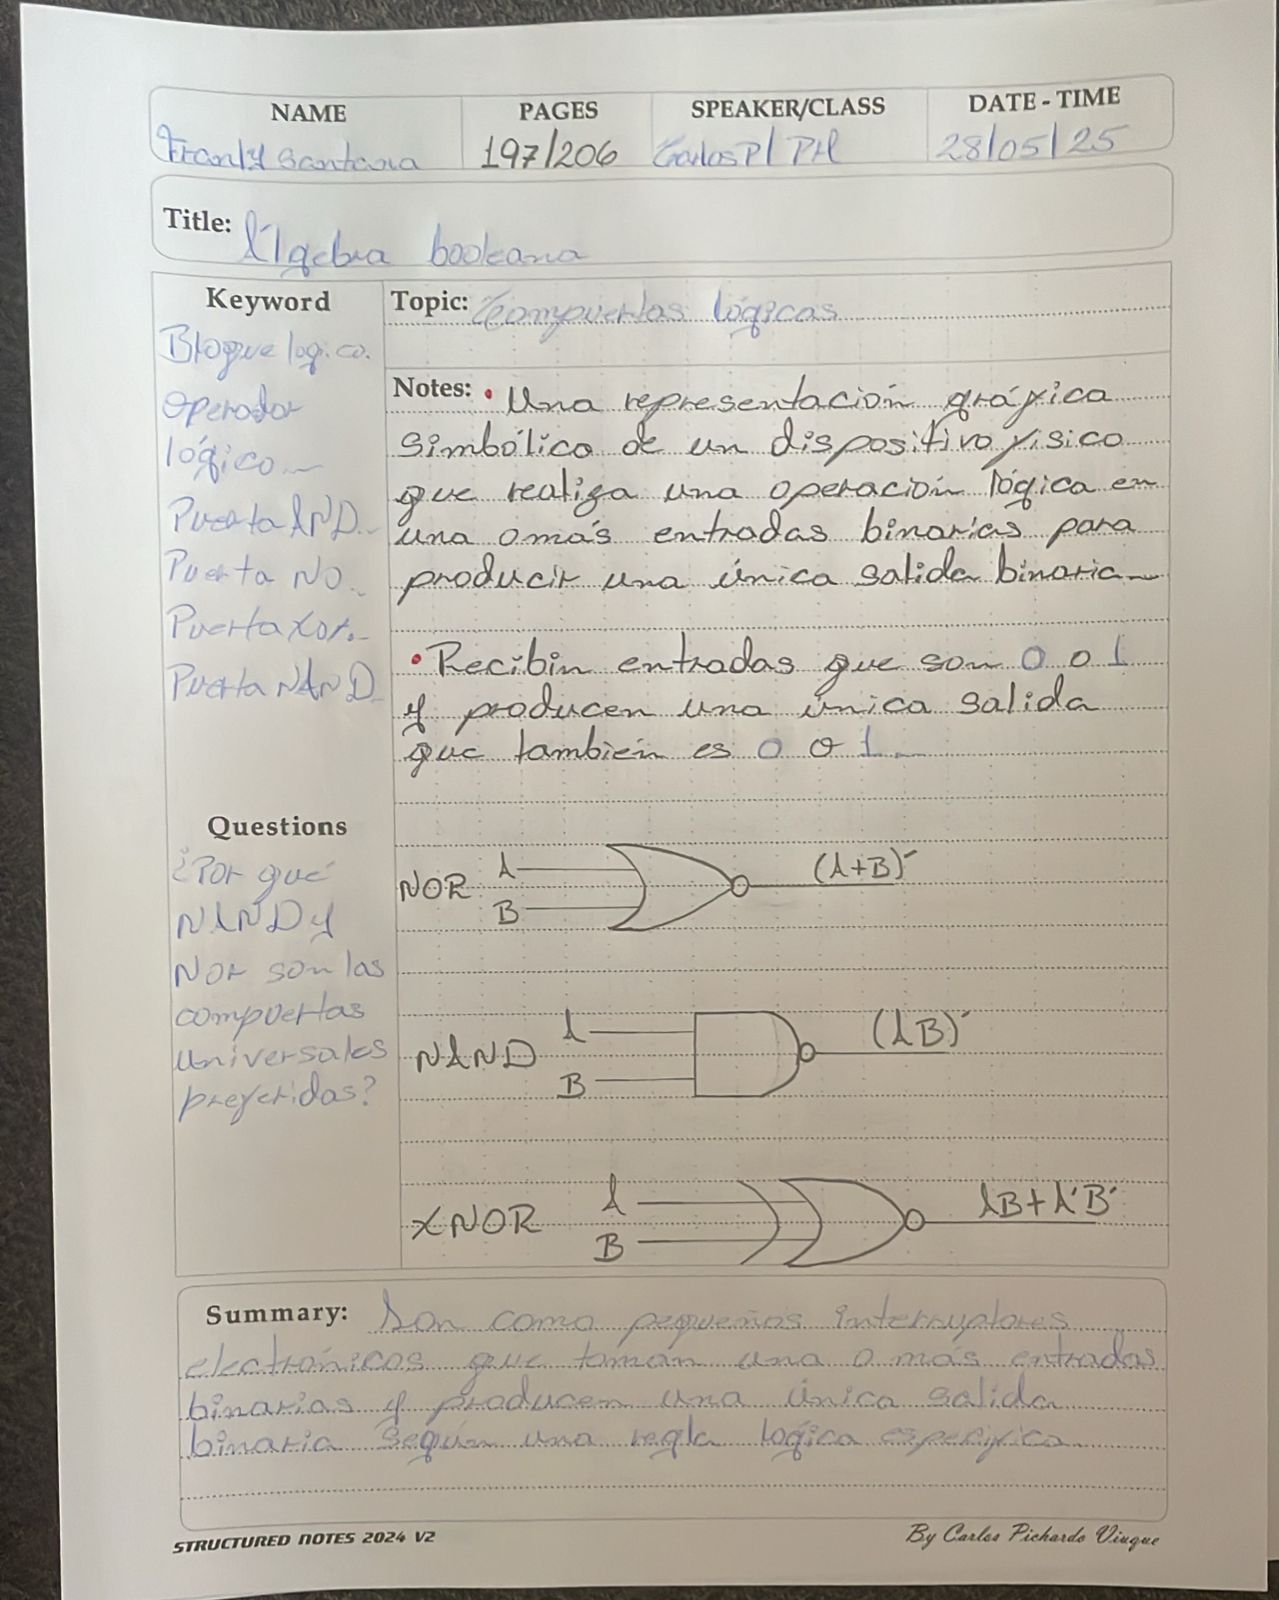 NAME PAGES SPEAKER/CLASS DATE - TIME
Franly Santana 197/206 Carlos P/ PH 28/05/25
Title: Álgebra booleana
Keyword
Bloque logico.
Operador
lógico
Puerta AND
Puerta NO
Puerta Xor.
Puerta NAND
Topic: Compuertas lógicas
Notes: • Una representación gráfica
simbólico de un dispositivo físico
que realiza una operación lógica en
una o más entradas binarias para
producir una única salida binaria
• Recibin entradas que son 0 o 1
y producen una única salida
que también es 0 o 1
Questions
¿Por qué
NAND y
Nor son las
compuertas
universales
preferidas?
NOR A B (A+B)'
NAND A B (AB)'
XNOR A B AB+A'B'
Summary: Son como pequeños interruptores
electrónicos que toman una o más entradas
binarias y producen una única salida
binaria según una regla lógica
STRUCTURED NOTES 2024 V2 By Carlos Pichardo Viuque